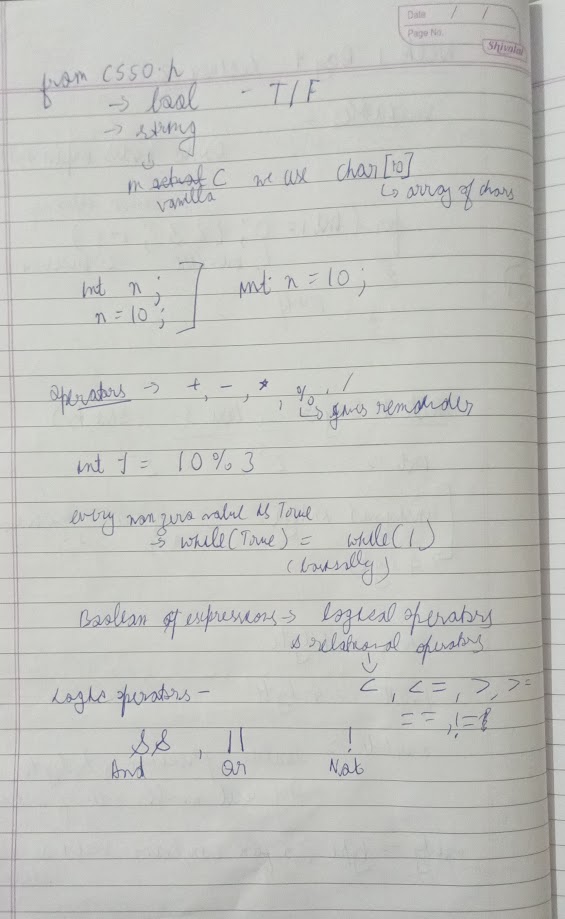 Date / /
Page No.
Shivalal
from CS50.h
→ bool - T/F
→ string
in actual C we use char[10]
vanilla ↳ array of chars
int n; ] int n = 10;
n = 10;
operators → +, -, *, %, /
↳ gives remainder
int y = 10 % 3
every non zero value is True
→ while(True) = while(1)
(basically)
Boolean expressions → logical operators
& relational operators
↓
<, <=, >, >=
Logic operators - ==, !=
&&, || !
And Or Not